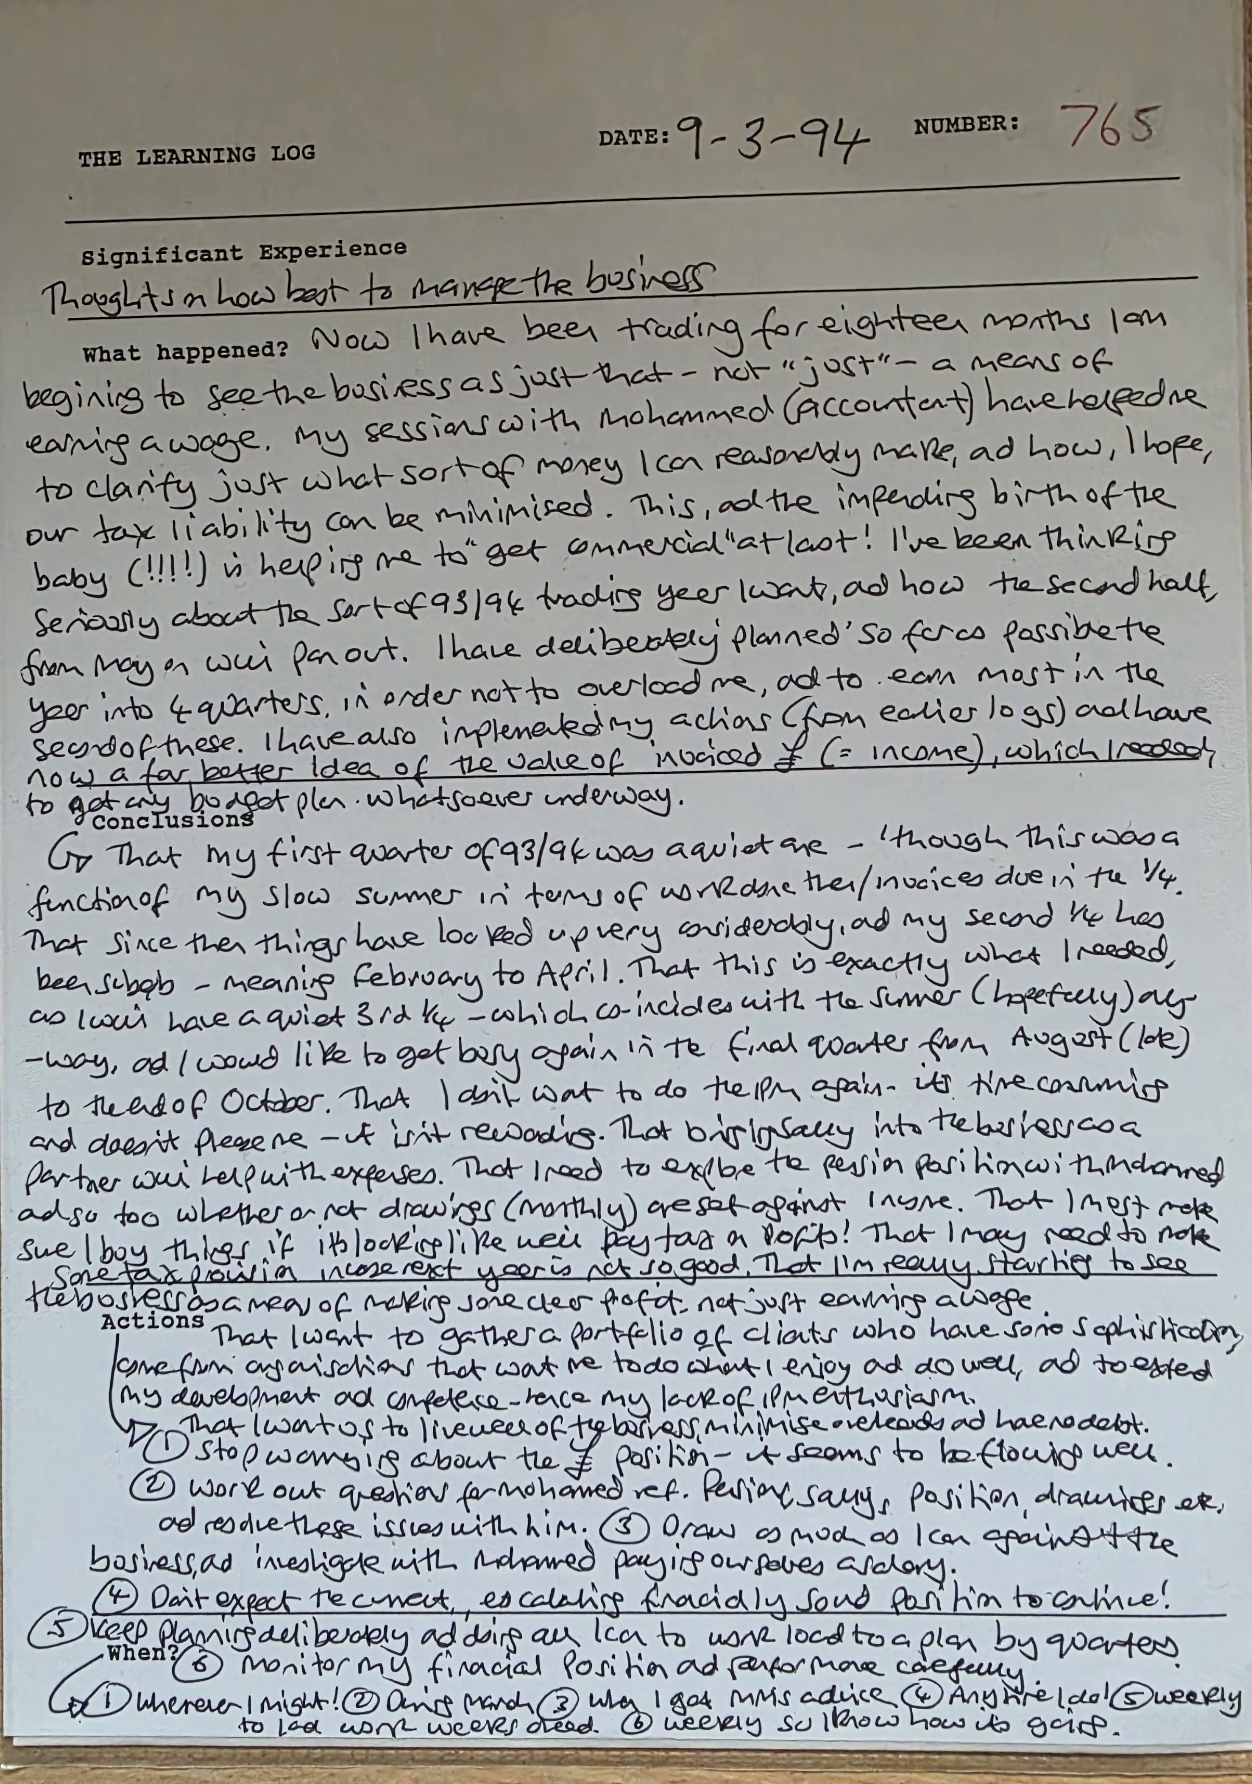 THE LEARNING LOG DATE: 9-3-94 NUMBER: 765
Significant Experience
Thoughts on how best to manage the business
What happened? Now I have been trading for eighteen months I am
begining to see the business as just that - not "just" - a means of
earning a wage. My sessions with Mohammed (accountant) have helped me
to clarify just what sort of money I can reasonably make, ad how, I hope,
our tax liability can be minimised. This, ad the impending birth of the
baby (!!!!) is helping me to "get commercial" at last! I've been thinking
seriously about the sort of 93/94 trading year I want, ad how the second half,
from May on will pan out. I have deliberately planned so far as possible the
year into 4 quarters, in order not to overload me, ad to earn most in the
second of these. I have also implemented my actions (from earlier logs) ad have
now a far better idea of the value of invoiced £ (= income), which I needed,
to get any budget plan whatsoever underway.
Conclusions
That my first quarter of 93/94 was a quiet one - 'though this was a
function of my slow summer in terms of work done then/invoices due in the 1/4.
That since then things have looked up very considerably, ad my second 1/4 has
been superb - meaning February to April. That this is exactly what I needed,
as I will have a quiet 3rd 1/4 - which co-incides with the summer (hopefully) any
-way, ad I would like to get busy again in the final quarter from August (late)
to the end of October. That I don't want to do the IPM again - its time consuming
and doesn't please me - it isn't rewarding. That bringing Sally into the business as a
partner will help with expenses. That I need to explore the pension position with Mohammed
ad so too whether or not drawings (monthly) are set against income. That I must make
sure I buy things if its looking like we'll pay tax on profits! That I may need to make
some tax provision incase next year is not so good. That I'm really starting to see
the business as a means of making some clear profit - not just earning a wage.
Actions That I want to gather a portfolio of clients who have some sophistication,
come from organisations that want me to do what I enjoy ad do well, ad to extend
my development ad competence - hence my lack of IPM enthusiasm.
That I want us to live well of the business, minimise overheads ad have no debt.
① Stop worrying about the £ position - it seems to be flowing well.
② Work out questions for Mohamed ref. Pensions, Sally's position, drawings etc.
ad resolve these issues with him. ③ Draw as much as I can against the
business, ad investigate with Mohammed paying ourselves a salary.
④ Don't expect the current, escalating financially sound position to continue!
⑤ Keep planning deliberately ad doing all I can to work load to a plan by quarters.
When? ⑥ Monitor my financial position ad performance carefully.
① Whenever I might! ② During March ③ When I get MM's advice ④ Anytime I do! ⑤ Weekly
to lad work weeks ahead. ⑥ Weekly so I know how its going.